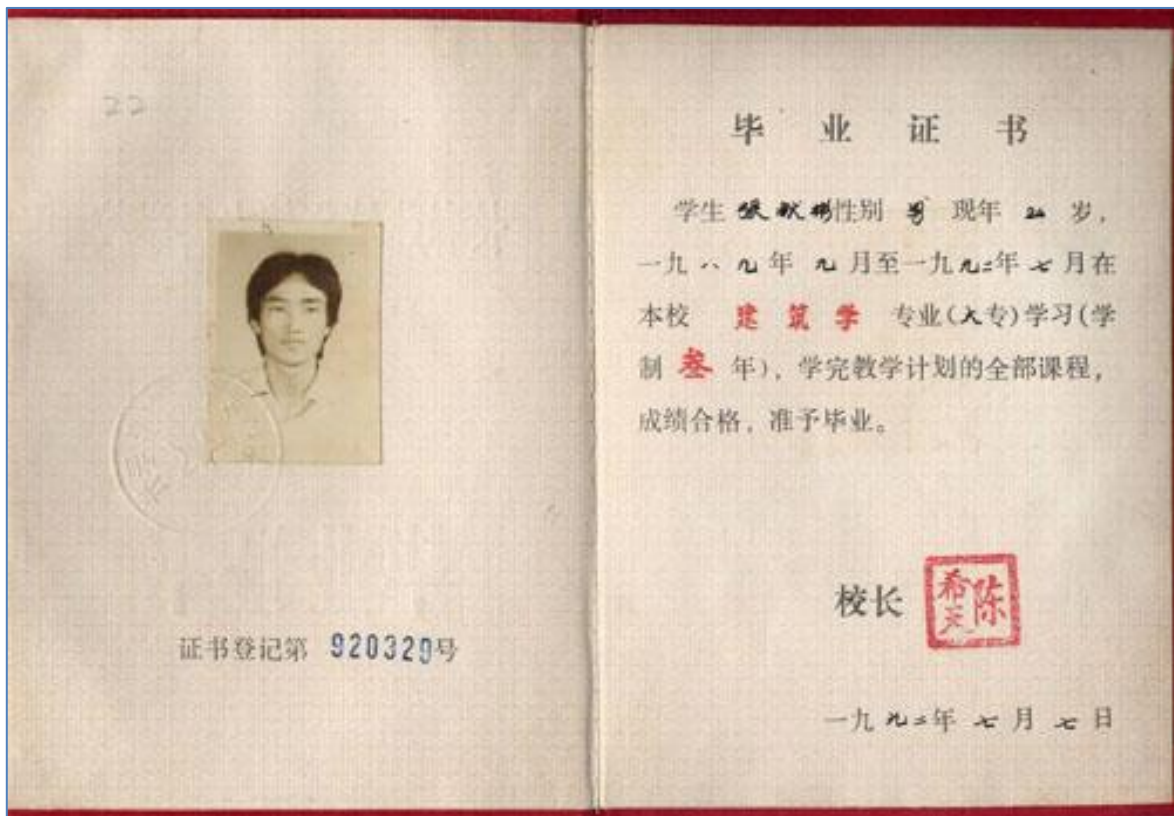 22
证书登记第 920329号
毕业证书
学生 张献彬性别 男 现年 20 岁，
一九八九年 九月至一九九二年七月在
本校 建筑学 专业（大专）学习（学
制 叁 年），学完教学计划的全部课程，
成绩合格，准予毕业。
校长 陈
一九九二年 七月 七日